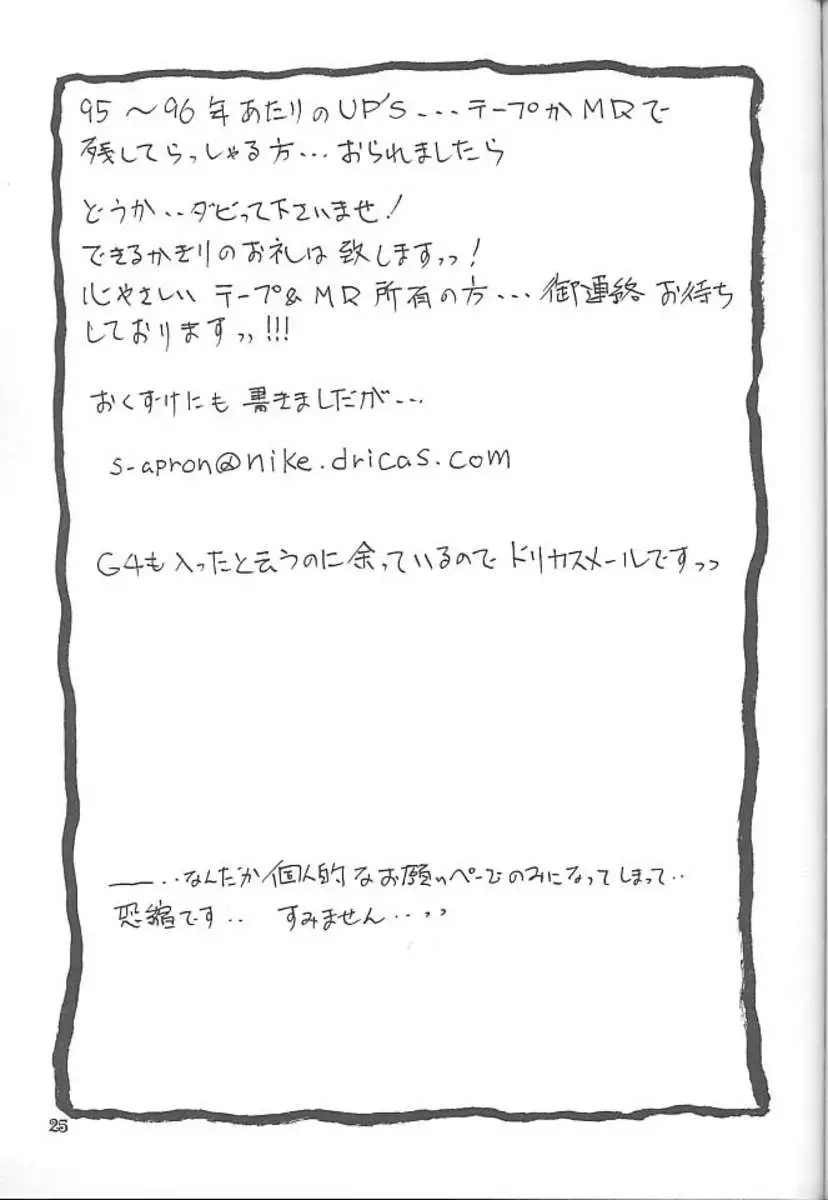 95〜96年あたりのUP'S...テープかMDで
残してらっしゃる方...おられましたら
どうか..ダビって下さいませ!
できるかぎりのお礼は致しますッッ!
心やさしい テープ&MD 所有の方...御連絡お待ち
しておりますッッ!!!
おくずけにも 書きましだが...
s-apron@nike.dricas.com
G4も入ったと云うのに余っているので ドリカスメールですっっ
——..なんだか個人的なお願いぺーじのみになってしまって..
恐縮です.. すみません..ッッ
25